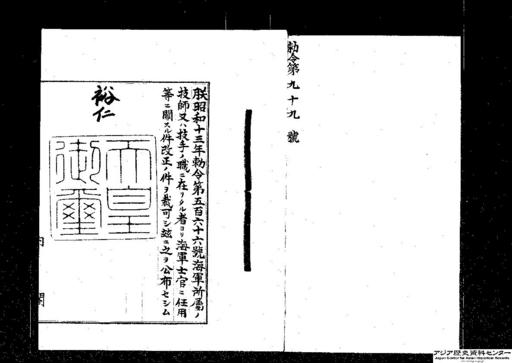 勅令第九十九號
朕昭和十三年勅令第五百六十六號海軍所屬ノ
技師又ハ技手ノ職ニ在リタル者ヨリ海軍士官ニ任用
等ニ關スル件改正ノ件ヲ裁可シ玆ニ之ヲ公布セシム
裕仁
天皇御璽
内閣
アジア歴史資料センター
Japan Center for Asian Historical Records